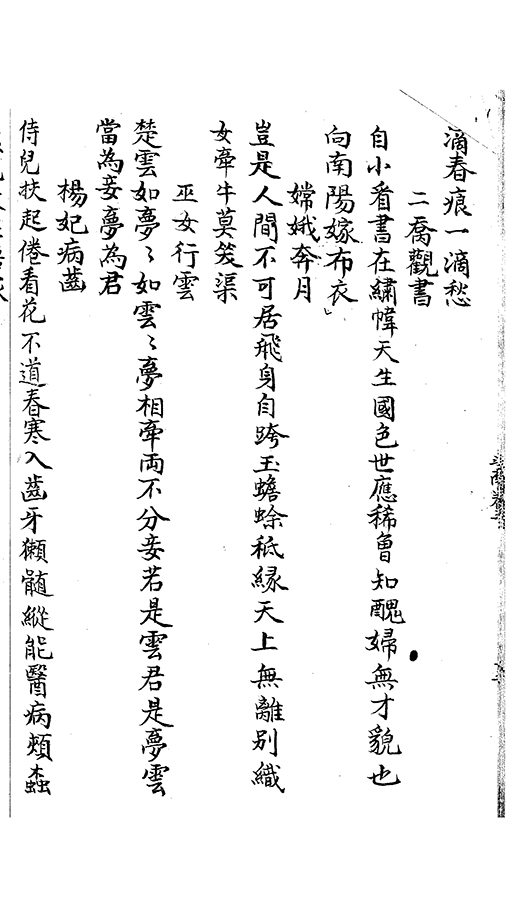 滴春痕一滴愁
二喬觀書
自小看書在繡幃天生國色世應稀曾知醜婦無才貌也
向南陽嫁布衣
嫦娥奔月
豈是人間不可居飛身自跨玉蟾蜍秖緣天上無離別織
女牽牛莫笑渠
巫女行雲
楚雲如夢〻如雲〻夢相牽兩不分妾若是雲君是夢雲
當為妾夢為君
楊妃病齒
侍兒扶起倦看花不道春寒入齒牙獺髓縱能醫病頰蟲